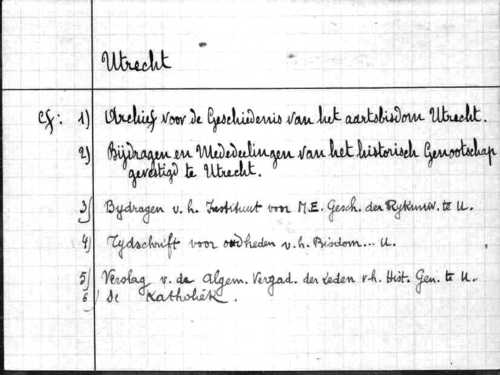 Utrecht
Cf: 1) Archief voor de Geschiedenis van het aartsbisdom Utrecht.
2) Bijdragen en Mededeelingen van het historisch Genootschap
gevestigd te Utrecht.
3) Bydragen v.h. Instituut voor M.E. Gesch. der Rykuniv. te U.
4) Tydschrift voor oudheden v.h. Bisdom... U.
5) Verslag v. de Algem. Vergad. der Leden v.h. Hist. Gen. te U.
6) De Katholiek.